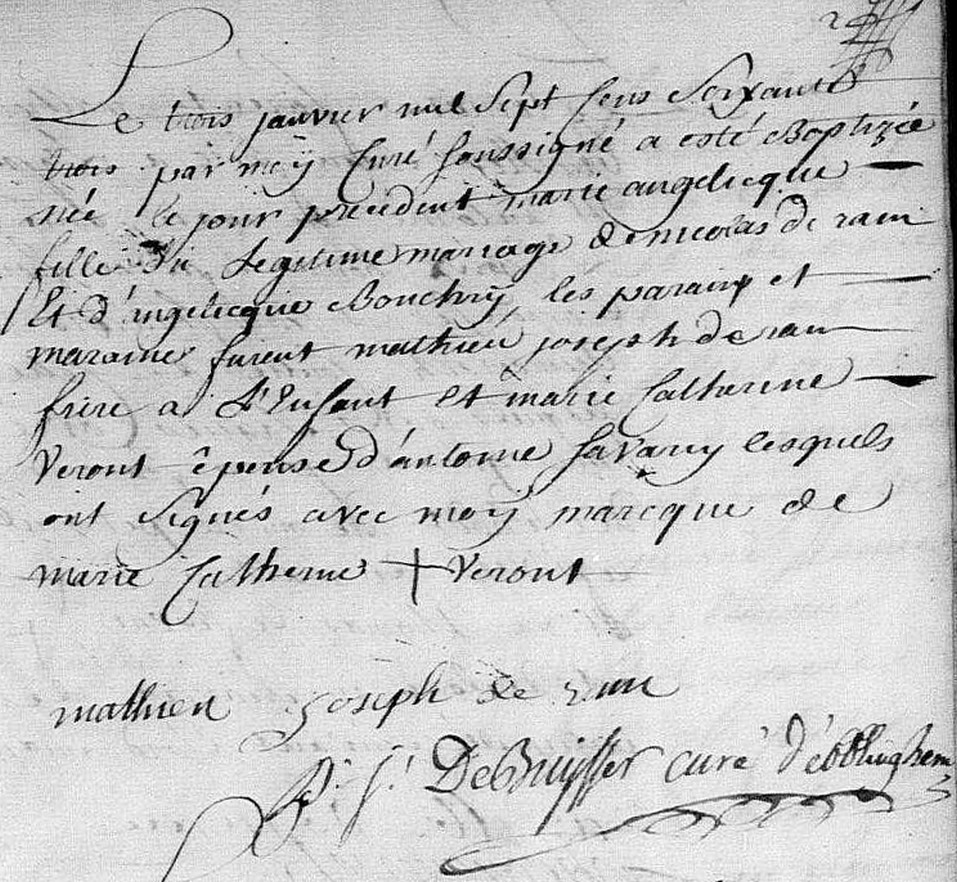 2
Le trois janvier mil Sept Cens Soixante
trois par moÿ Curé soussigné a esté Baptizée
née le jour precedent marie angelicque
fille du Legitime mariage de nicolas de ram
Et d'angelicque Bouchrÿ, les parain et
maraine furent mathieu joseph de ram
frere a L'Enfant et marie Catherine
Veront épense d'antoine Savary lesquels
ont signés avec moÿ marcque de
marie Catherine + Veront
mathieu joseph de ram
P: J: DeBuysser curé d'ébblinghem